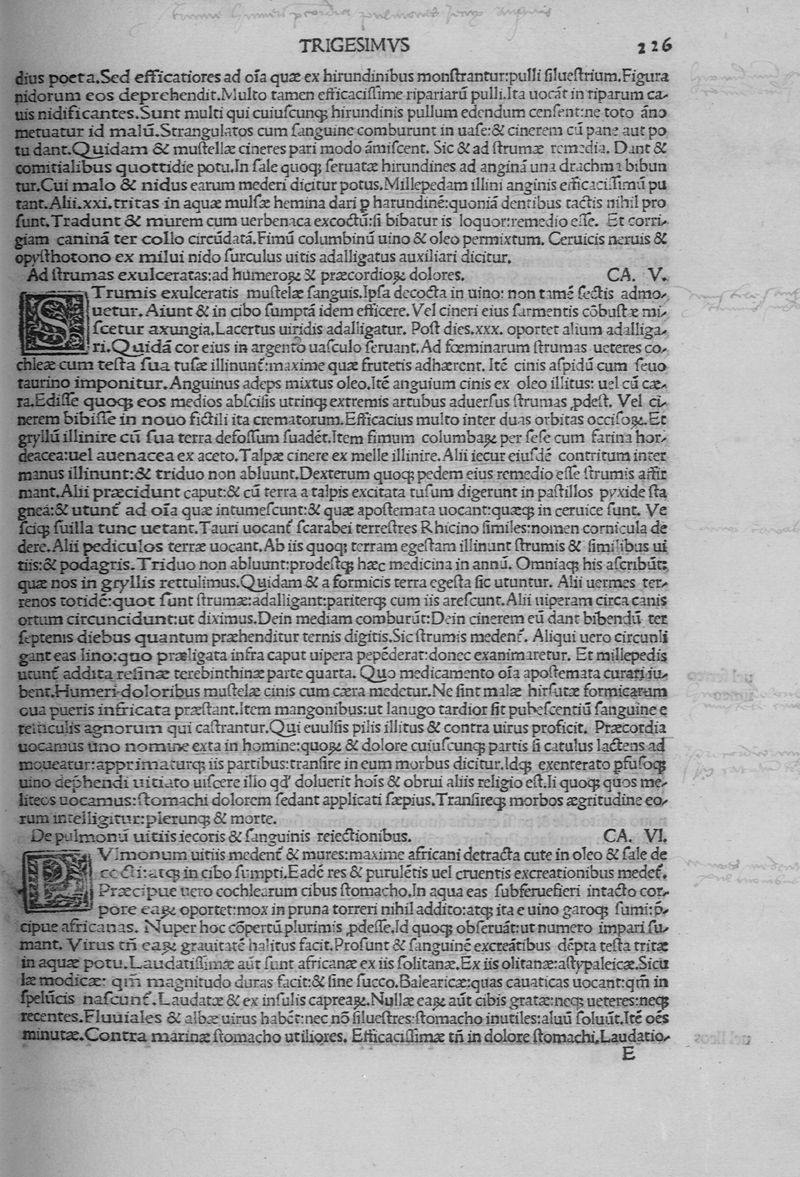 TRIGESIMVS 226
dius poeta.Sed efficatiores ad oīa quæ ex hirundinibus monſtrantur:pulli ſilueſtrium.Figura
nidorum eos deprehendit.Multo tamen efficaciſſime ripariarū pulli.Ita uocāt in riparum ca⸗
uis nidificantes.Sunt multi qui cuiuſcunq; hirundinis pullum edendum cenſent:ne toto áno
metuatur id malū.Strangulatos cum ſanguine comburunt in uaſe:& cinerem cū pane aut po
tu dant.Quidam & muſtellæ cineres pari modo ámiſcent. Sic & ad ſtrumæ remedia. Dant &
comitialibus quottidie potu.In ſale quoq; ſeruatæ hirundines ad anginā una drachma bibun
tur.Cui malo & nidus earum mederi dicitur potus.Millepedam illini anginis efficaciſſimū pu
tant.Alii.xxi.tritas in aquæ mulſæ hemina dari ꝑ harundinē:quoniā dentibus tactis nihil pro
ſunt.Tradunt & murem cum uerbenaca excoctū:ſi bibatur is loquor:remedio eſſe. Et corri⸗
giam caninā ter collo circūdatā.Fimū columbinū uino & oleo permixtum. Ceruicis neruis &
opyſthotono ex milui nido ſurculus uitis adalligatus auxiliari dicitur.
Ad ſtrumas exulceratas:ad humeroꝝ & præcordioꝝ dolores. CA. V.
STrumis exulceratis muſtelæ ſanguis.Ipſa decocta in uino: non tamē ſectis admo⸗
uetur. Aiunt & in cibo ſumptā idem efficere. Vel cineri eius ſarmentis cōbuſtæ mi⸗
ſcetur axungia.Lacertus uiridis adalligatur. Poſt dies.xxx. oportet alium adalliga⸗
ri.Quidā cor eius in argento uaſculo ſeruant. Ad fœminarum ſtrumas ueteres co⸗
chleæ cum teſta ſua tuſæ illinunt̄:maxime quæ frutetis adhærent. Itē cinis aſpidū cum ſeuo
taurino imponitur. Anguinus adeps mixtus oleo.Itē anguium cinis ex oleo illitus: uel cū cæ⸗
ra.Ediſſe quoq; eos medios abſciſis utrinq; extremis artubus aduerſus ſtrumas ꝓdeſt. Vel ci⸗
nerem bibiſſe in nouo fictili ita crematorum.Efficacius multo inter duas orbitas occiſoꝝ.Et
gryllū illinire cū ſua terra defoſſum ſuadēt.Item fimum columbaꝝ per ſeſe cum farina hor⸗
deacea:uel auenacea ex aceto. Talpæ cinere ex melle illinire. Alii iecur eiuſdē contritum inter
manus illinunt:& triduo non abluunt.Dexterum quoq; pedem eius remedio eſſe ſtrumis affir
mant.Alii præcidunt caput:& cū terra a talpis excitata tuſum digerunt in paſtillos pyxide ſta
gnea:& utunt̄ ad oīa quæ intumeſcunt:& quæ apoſtemata uocant:quæq; in ceruice ſunt. Ve
ſciq; ſuilla tunc uetant.Tauri uocant̄ ſcarabei terreſtres Rhicino ſimiles:nomen cornicula de
dere. Alii pediculos terræ uocant.Ab iis quoq; terram egeſtam illinunt ſtrumis & ſimilibus ui
tiis:& podagris.Triduo non abluunt:prodeſtq; hæc medicina in annū. Omniaq; his aſcribūt:
quæ nos in gryllis rettulimus.Quidam & a formicis terra egeſta ſic utuntur. Alii uermes ter⸗
renos totidē:quot ſunt ſtrumæ:adalligant:pariterq; cum iis areſcunt. Alii uiperam circa canis
ortum circuncidunt:ut diximus.Dein mediam comburūt:Dein cinerem eū dant bibendū ter
ſeptenis diebus quantum præhenditur ternis digitis.Sic ſtrumis medent̄. Aliqui uero circunli
gant eas lino:quo præligata infra caput uipera pepēderat:donec exanimaretur. Et millepedis
utunt̄ addita reſinæ terebinthinæ parte quarta. Quo medicamento oīa apoſtemata curari iu⸗
bent.Humeri doloribus muſtelæ cinis cum cæra medetur.Ne ſint malæ hirſutæ formicarum
oua pueris infricata præſtant.Item mangonibus:ut lanugo tardior ſit pubeſcentiū ſanguine e
teſticulis agnorum qui caſtrantur.Qui euulſis pilis illitus & contra uirus proficit. Præcordia
uocamus uno nomine exta in homine:quoꝝ & dolore cuiuſcunq; partis ſi catulus lactens ad
moueatur:apprimaturq; iis partibus:tranſire in eum morbus dicitur.Idq; exenterato pfuſoq;
uino dephendi uitiato uiſcere illo qd̕ doluerit hoīs & obrui aliis religio eſt.Ii quoq; quos me⸗
liteos uocamus:ſtomachi dolorem ſedant applicati ſæpius.Tranſireq; morbos ægritudine eo⸗
rum intelligitur:plerunq; & morte.
De pulmonū uitiis iecoris & ſanguinis reiectionibus. CA. VI.
PVlmonum uitiis medent̄ & mures:maxime africani detracta cute in oleo & ſale de
cocti:atq; in cibo ſumpti.Eadē res & purulētis uel cruentis excreationibus medet̄.
Præcipue uero cochlearum cibus ſtomacho.In aqua eas ſubferuefieri intacto cor⸗
pore eaꝝ oportet:mox in pruna torreri nihil addito:atq; ita e uino garoq; ſumi:p̄⸗
cipue africanas. Nuper hoc cōpertū plurimis ꝓdeſſe.Id quoq; obſeruāt:ut numero impari ſu⸗
mant. Virus tn̄ eaꝝ grauitatē halitus facit.Proſunt & ſanguinē excreātibus dēpta teſta tritæ
in aquæ potu.Laudatiſſimæ aūt ſunt africanæ ex iis ſolitanæ.Ex iis olitanæ:aſtypaleicæ.Sicu
læ modicæ: qm̄ magnitudo duras facit:& ſine ſucco.Balearicæ:quas cauaticas uocant:qm̄ in
ſpelūcis naſcunt̄.Laudatæ & ex inſulis capreaꝝ.Nullæ eaꝝ aūt cibis gratæ:neq; ueteres:neq;
recentes.Fluuiales & albæ uirus habēt:nec nō ſilueſtres:ſtomacho inutiles:aluū ſoluūt.Itē oēs
minutæ.Contra marinæ ſtomacho utiliores. Efficaciſſimæ tn̄ in dolore ſtomachi.Laudatio⸗
E